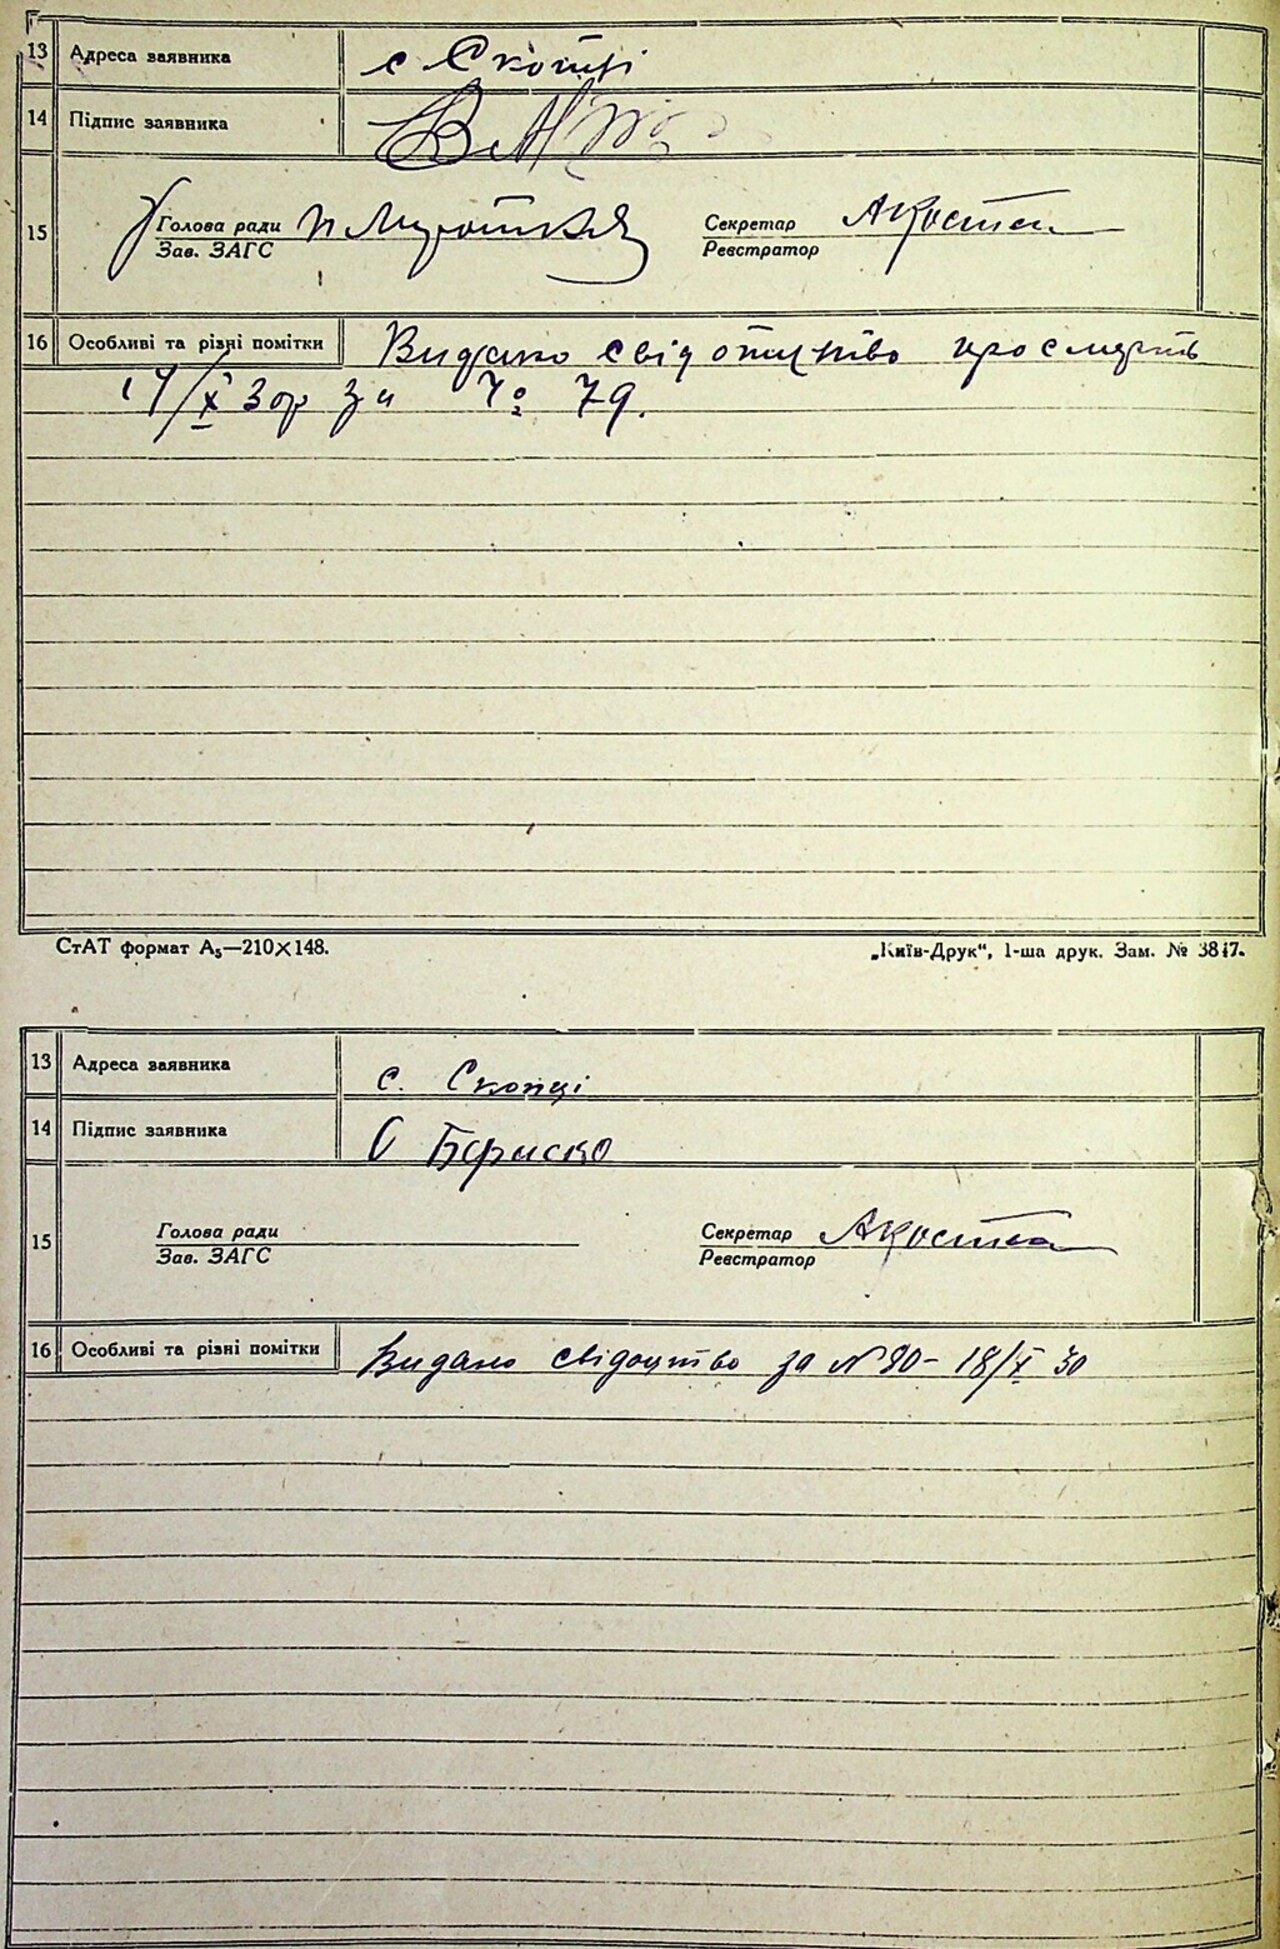 13 Адреса заявника с Скопці
14 Підпис заявника
15 Голова ради Секретар АКоста
Зав. ЗАГС Реєстратор
16 Особливі та різні помітки Видано свідоцтво про смерть
17/X 30р за № 79.
СтАТ формат А₅—210×148. „Київ-Друк“, 1-ша друк. Зам. № 3847.
13 Адреса заявника с. Скопці
14 Підпис заявника
15 Голова ради Секретар АКоста
Зав. ЗАГС Реєстратор
16 Особливі та різні помітки Видано свідоцтво за N 80 - 18/X 30